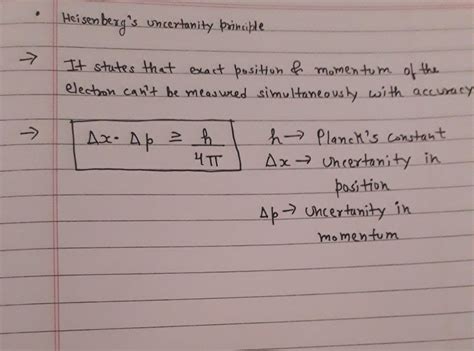 • Heisenberg's uncertanity principle
→ It states that exact position & momentum of the
electron can't be measured simultaneously with accuracy
→ Δx · Δp ≅ h/4π h → Planck's constant
Δx → uncertanity in
position
Δp → uncertanity in
momentum